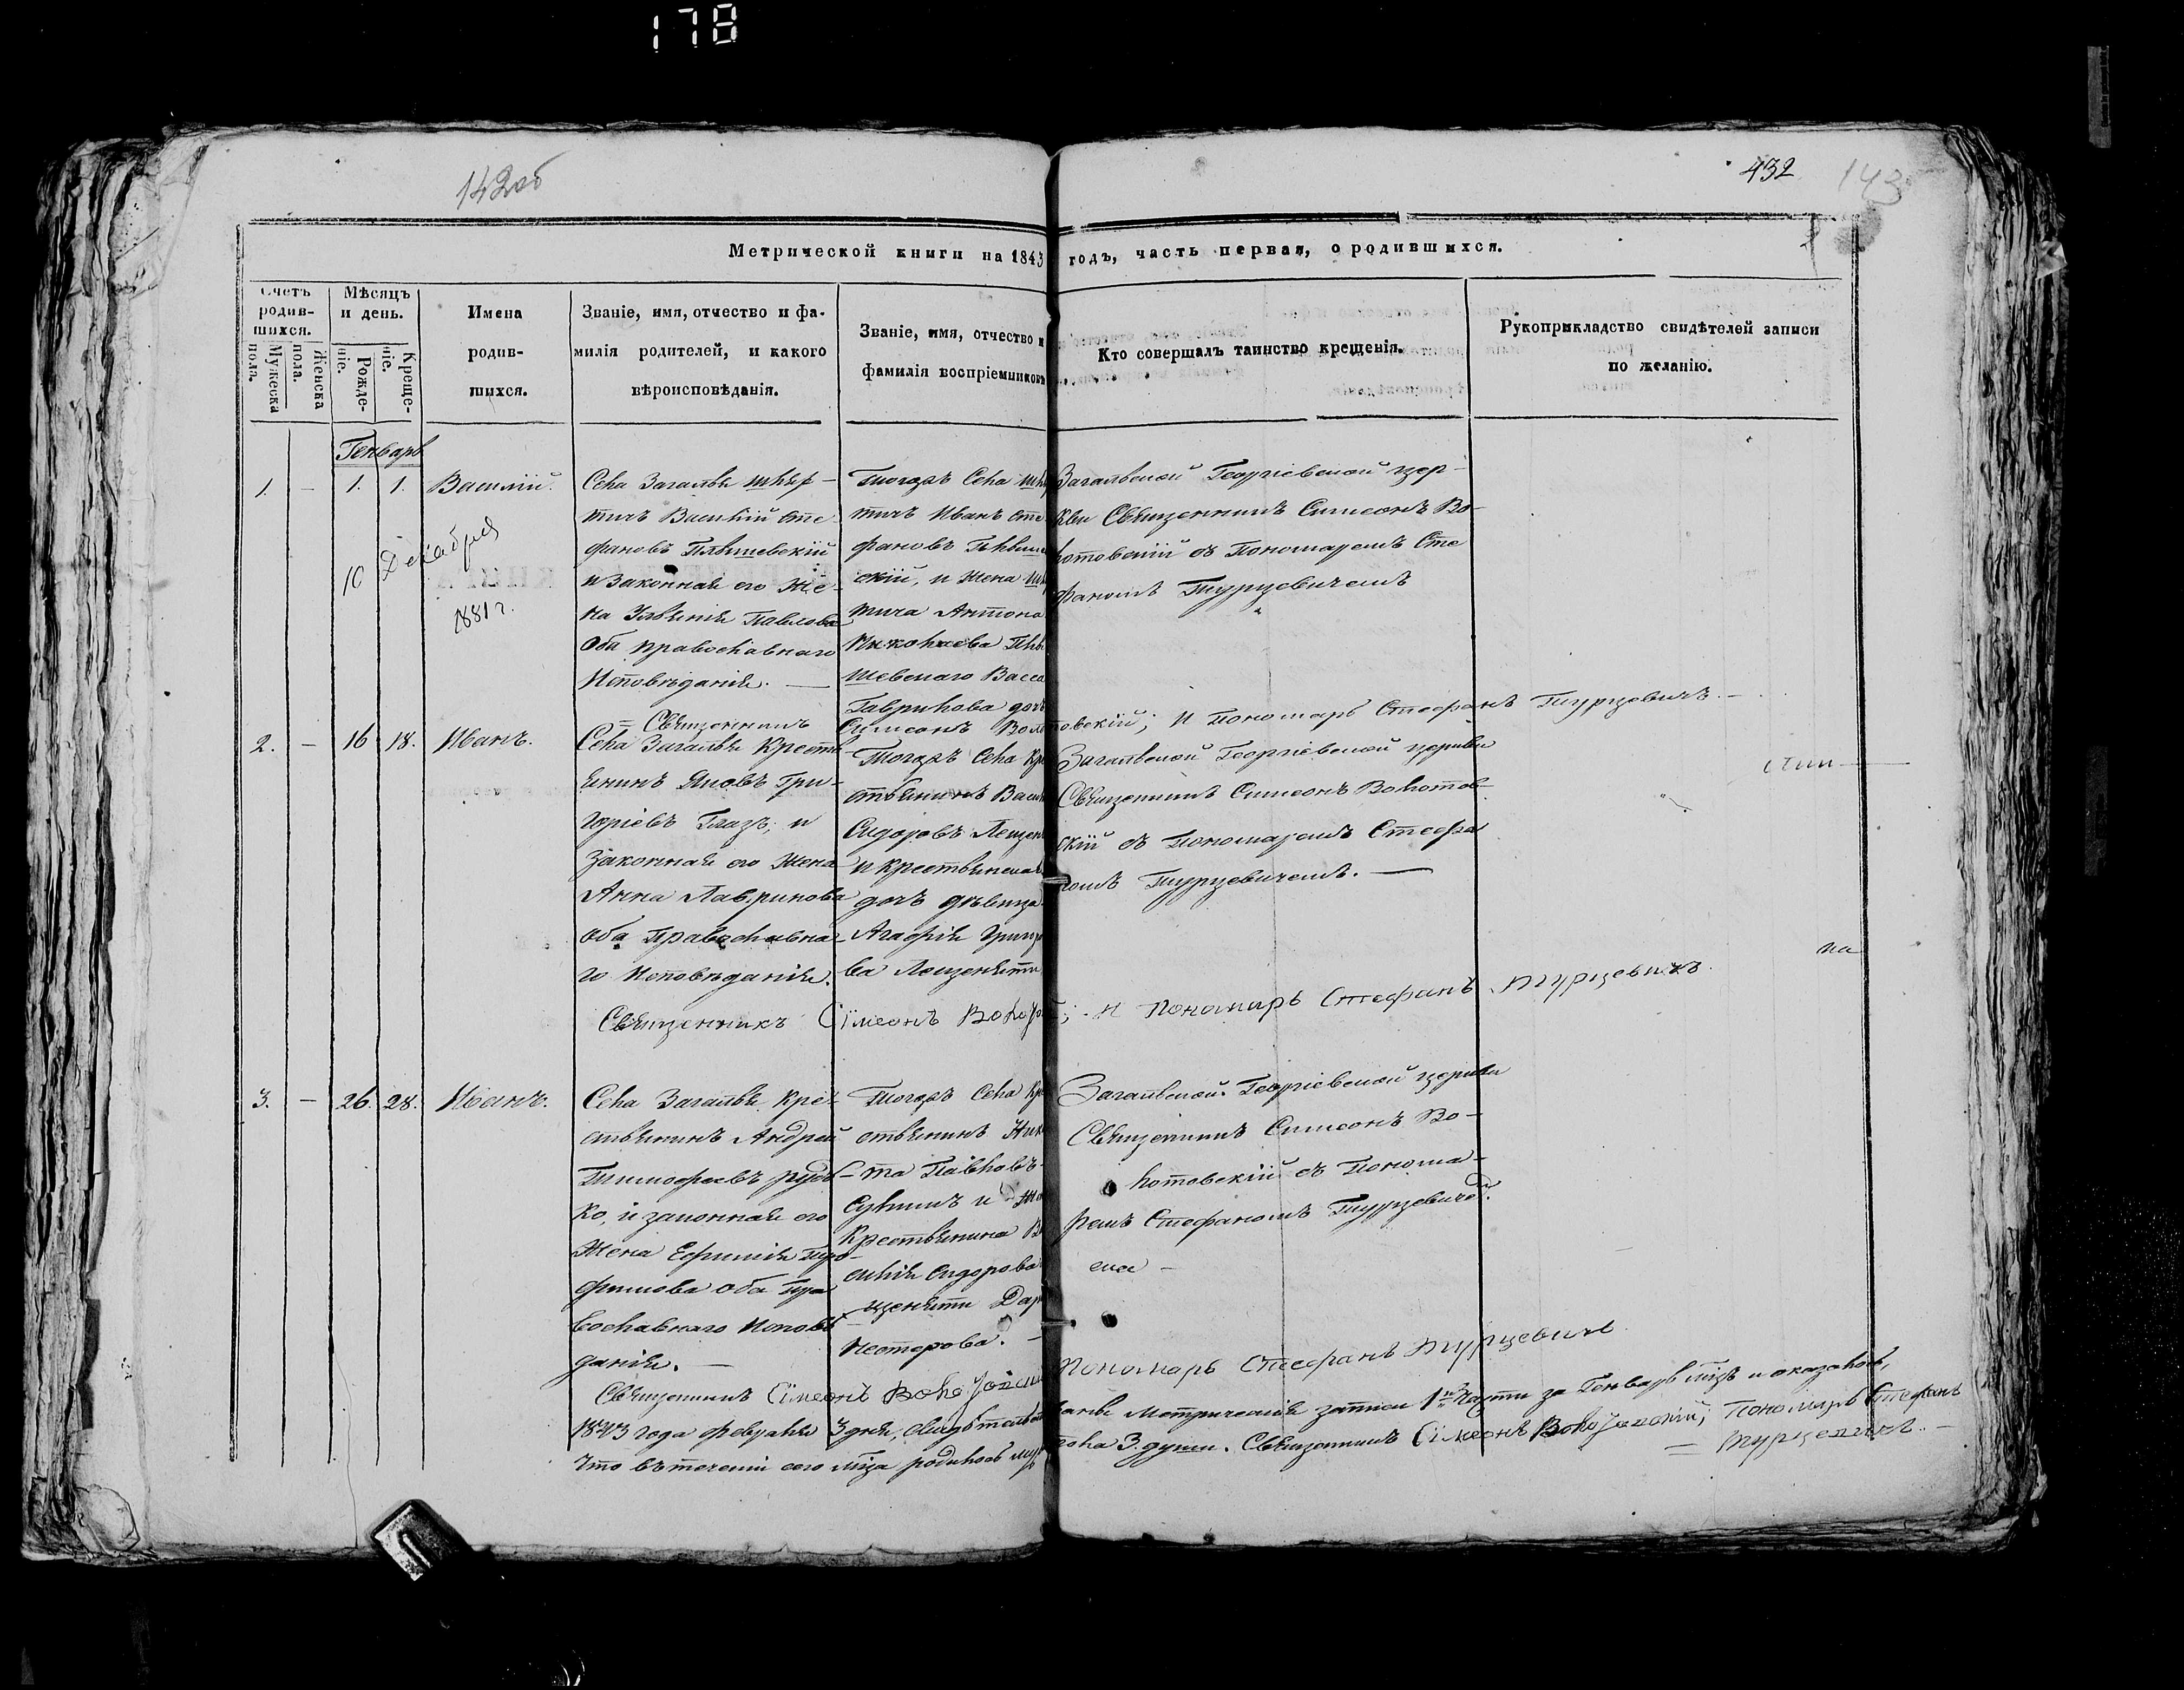 178
142об
432
143
Метрической книги на 1843 годъ, часть первая, о родившихся.
Счетъ родив-
шихся.
Мужеска пола.
Женска пола.
Мѣсяцъ
и день.
Рожде-
ніе.
Креще-
ніе.
Имена
родив-
шихся.
Званіе, имя, отчество и фа-
милія родителей, и какого
вѣроисповѣданія.
Званіе, имя, отчество и
фамилія воспріемниковъ
Кто совершалъ таинство крещенія.
Рукоприкладство свидѣтелей записи
по желанію.
Генварь
1. — 1. 1. Василій.
10 Декабря
1881 г.
Села Загалья шлях-
тичъ Василій Сте-
фановъ
и законная его же-
на Павлова
оба православнаго
Исповѣданія. —
Тогожъ Села
тичъ Иванъ Сте
фановъ
скій, и жена
тича Антона
Николаева
шевскаго Васса
Гаврилова дочь
Загальской Георгіевской цер-
кви Священникъ Симеонъ Во-
лотовскій съ Пономаремъ Сте
фаномъ Турцевичемъ
Священникъ Симеонъ ; и Пономарь Стефанъ Турцевичъ. —
2. — 16 18. Иванъ.
Села Загалья Крестъ
янинъ Яковъ Гри-
горіевъ Глазъ; и
Законная его Жена
Анна Лавринова
оба Православна-
го Исповѣданія.
Тогожъ Села Кре
стьянинъ
Сидоровъ
и крестьянская
дочь дѣвица
Агафія
ва
Загальской Георгіевской церкви
Священникъ Симеонъ Волотов-
скій съ Пономаремъ Стефа
номъ Турцевичемъ. —
Священникъ Сімеонъ ; и Пономарь Стефанъ Турцевичъ.
3. — 26. 28. Иванъ.
Села Загалья Кре-
стьянинъ Андрей
Тимофеевъ
ко, и законная его
Жена Ефимія Тро-
фимова оба Пра
вославнаго Исповѣ
данія. —
Тогожъ Села Кр
стьянинъ Ники
та Павловъ
и
Крестьянина
силія Сидорова
Нестерова. —
Загальской Георгіевской церкви
Священникъ Симеонъ Во-
лотовскій съ Понома-
ремъ Стефаномъ Турцевичемъ.
Священникъ Сімеонъ Пономарь Стефанъ Турцевичъ
1843 года февраля 3 дня, метрическія записи 1й части за Генварь мцъ и оказалось,
что въ теченіи сего мца родилось пола 3. души. Священникъ Сімеонъ Пономарь Стефанъ
Турцевичъ. —